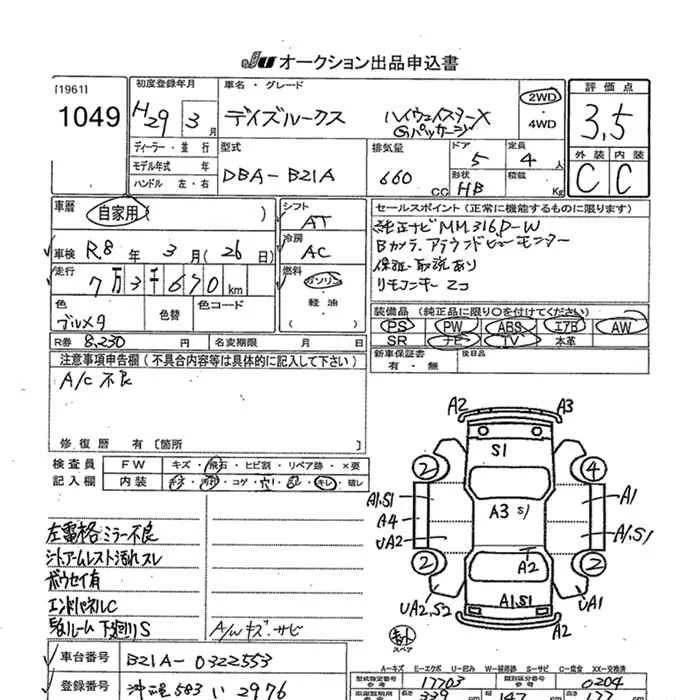 JU オークション出品申込書
[1961]
1049
初度登録年月
H29 3月
ディーラー・並行
モデル年式 年
ハンドル 左・右
車名・グレード
デイズルークス ハイウェイスターX
Gパッケージ
2WD
・4WD
評価点
3,5
型式
DBA-B21A
排気量
660 CC
ドア
5
形状
HB
定員
4人
積載
Kg
外装 内装
C C
車歴
自家用 )
車検 R.8年 3月 (26日)
走行
7万3千670km
色
ブルメタ
色替
色コード
シフト
AT
冷房
AC
燃料
ガソリン
軽油
( )
セールスポイント (正常に機能するものに限ります)
純正ナビ MM316D-W
Bカメラ、アラウンドビューモニター
保証・取説あり
リモコンキー 2コ
装備品 (純正品に限り○を付けてください)
PS PW ABS エアB AW
SR ナビ TV 本革
R券 8,230 円
名変期限 月 日
新車保証書
有・無
後日品
注意事項申告欄(不具合内容等は具体的に記入して下さい)
A/C 不良
修復歴 有〔箇所 〕
検査員
記入欄
FW キズ・飛石・ヒビ割・リペア跡・×要
内装
キレ・破レ
左電格ミラー不良
シートアームレスト汚れスレ
ボウセイ有
エンドパネルC
下廻りS
A/Wキズ・サビ
A2 A3
S1
2 4
A1.S1
A4
UA2
A3 S1
A1
A1.S1
A2
2 2
UA2.S2
A1.S1
UA1
A2
スペア
A-キズ E-エクボ U-凹み W-補修跡 S-サビ C-腐食 XX-交換済
車台番号
B21A-0322553
登録番号
沖縄 583 い 2976
型式指定番号
参考
17703
類別区分番号
参考
0204
長さ 339 cm
幅 147
高さ 177 cm